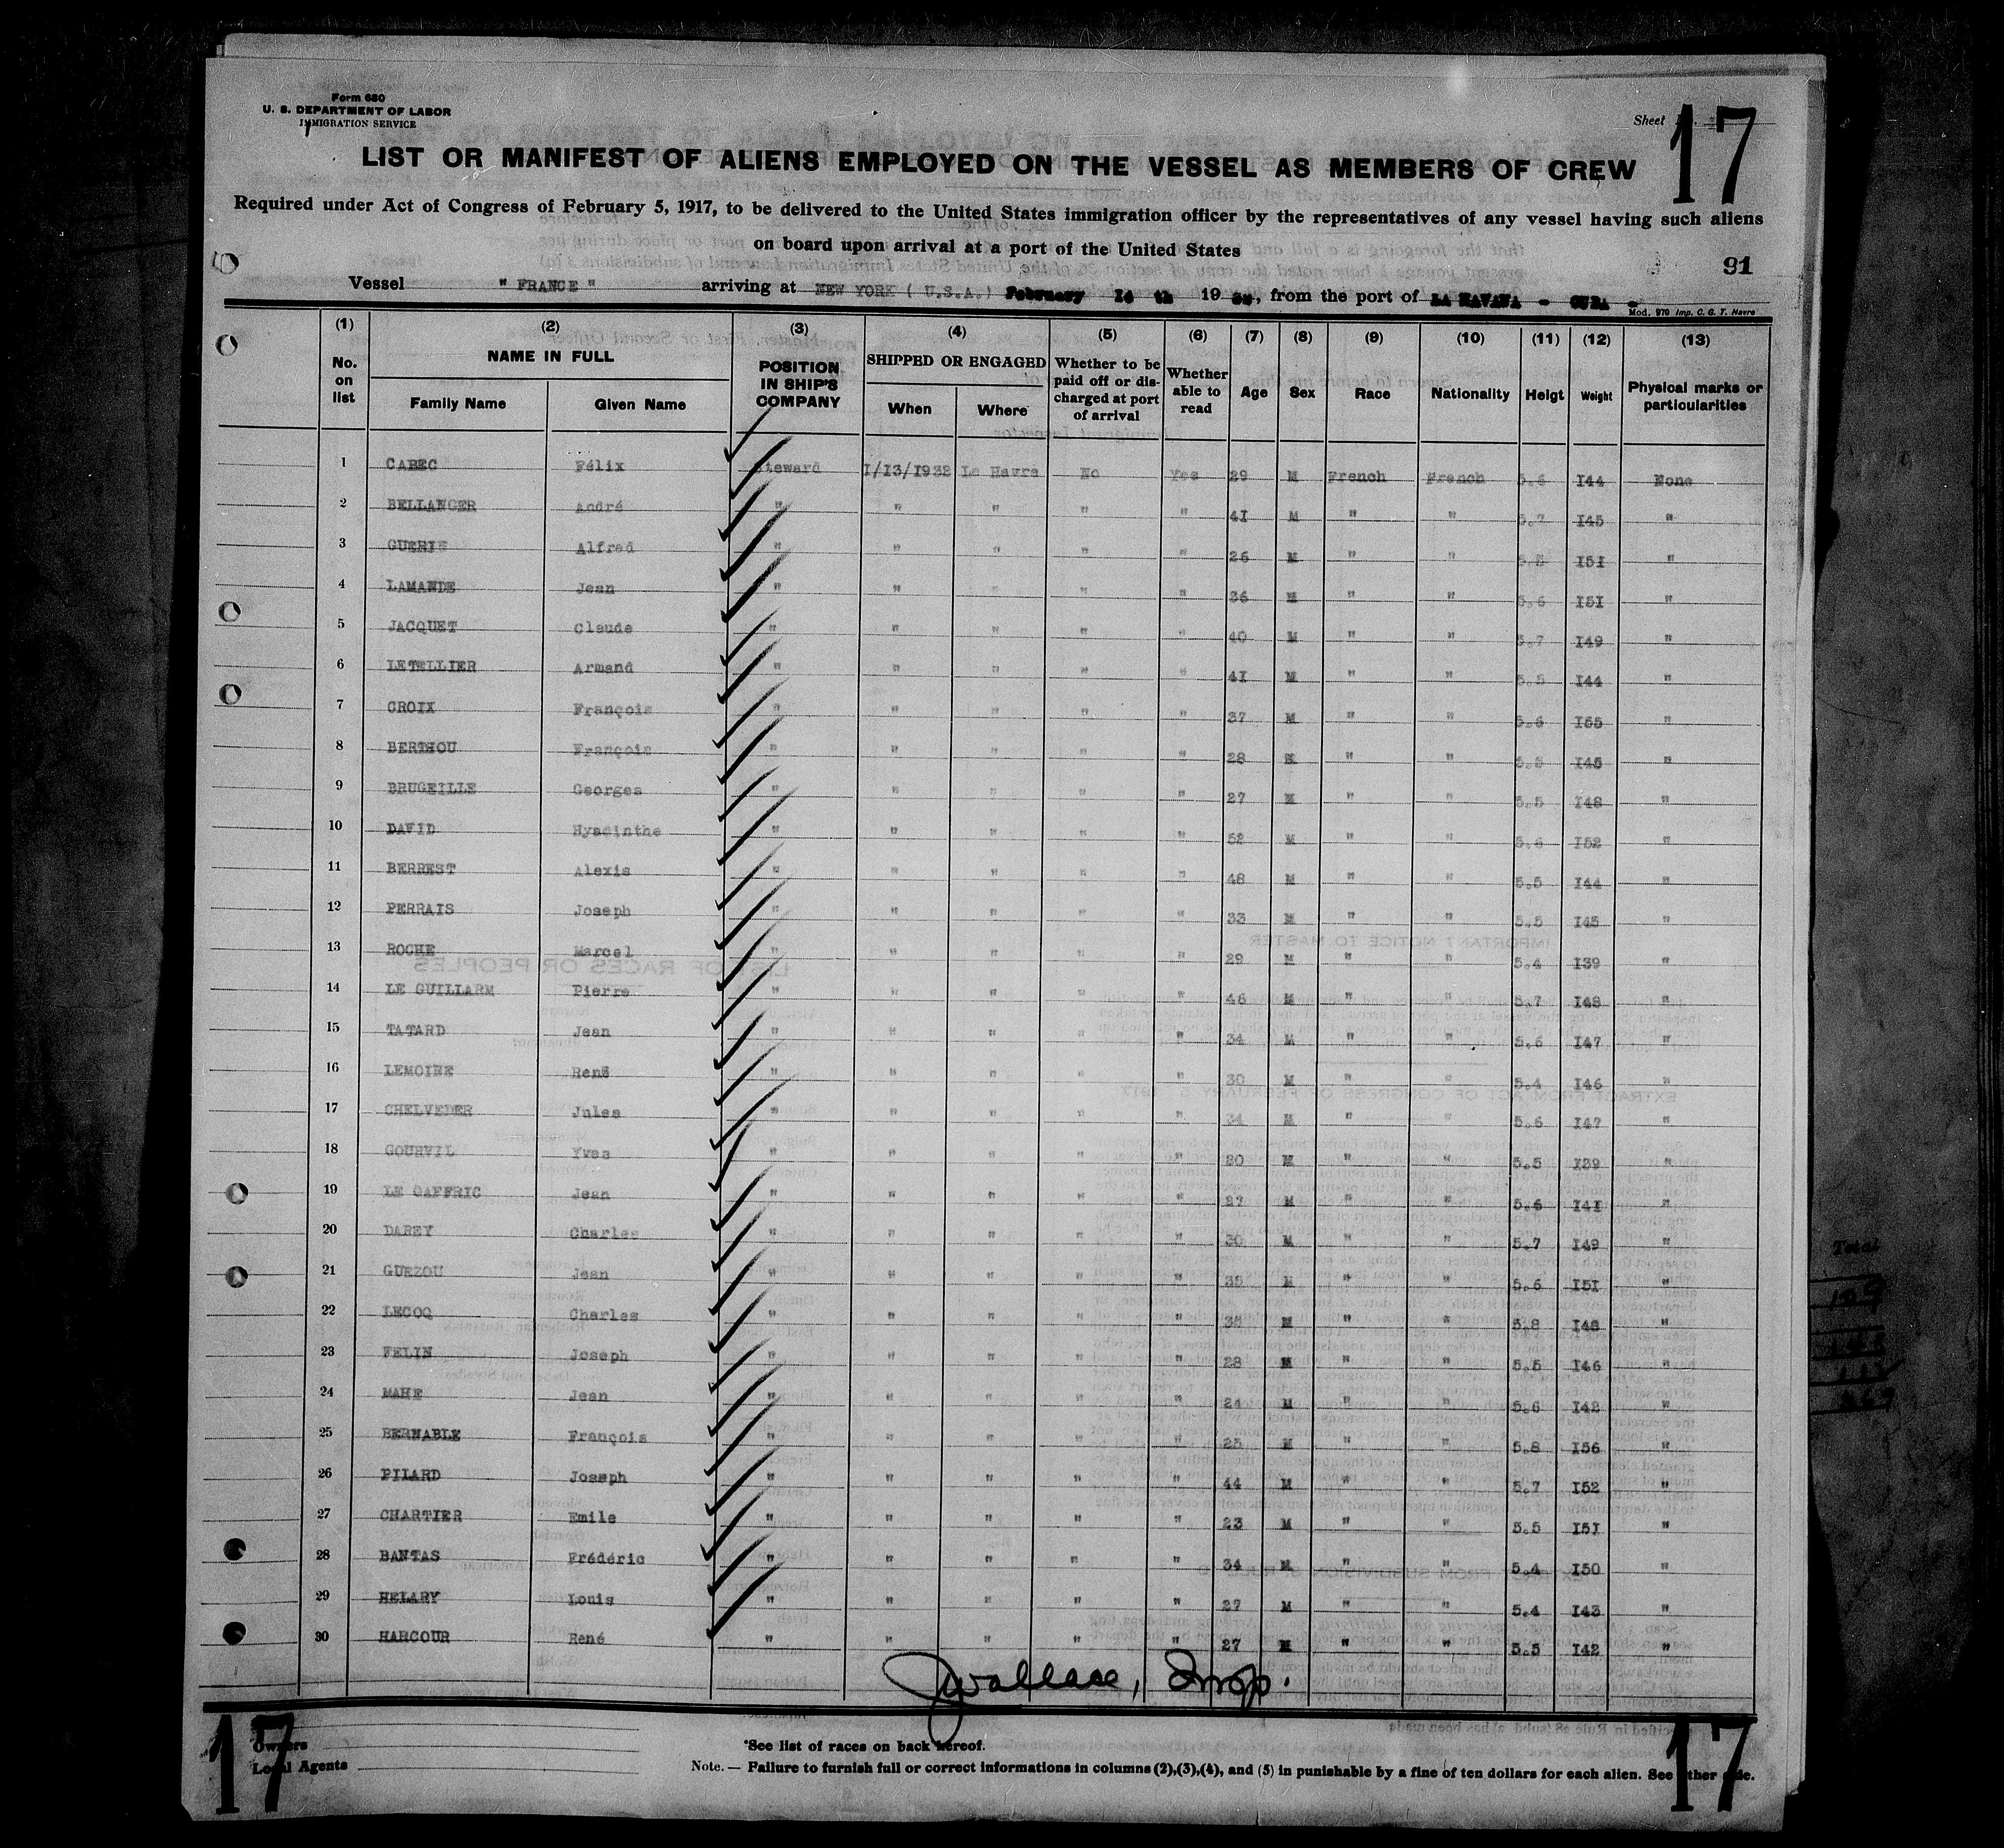 Form 680
U. S. DEPARTMENT OF LABOR
IMMIGRATION SERVICE
Sheet
17
LIST OR MANIFEST OF ALIENS EMPLOYED ON THE VESSEL AS MEMBERS OF CREW
Required under Act of Congress of February 5, 1917, to be delivered to the United States immigration officer by the representatives of any vessel having such aliens
on board upon arrival at a port of the United States
91
Vessel " FRANCE " arriving at NEW YORK ( U.S.A.) February 14 th 19 , from the port of LA HAVANA - CUBA -
Mod. 970 Imp. C. G. T. Havre
(1) (2) (3) (4) (5) (6) (7) (8) (9) (10) (11) (12) (13)
No. on list NAME IN FULL Family Name Given Name POSITION IN SHIP'S COMPANY SHIPPED OR ENGAGED When Where Whether to be paid off or discharged at port of arrival Whether able to read Age Sex Race Nationality Heigt Weight Physical marks or particularities
1 CABEC Félix Steward I/I3/1932 Le Havre No Yes 29 M French French 5.6 I44 None
2 BELLANGER André " " " " " 41 M " " 5.7 I45 "
3 GUERIE Alfred " " " " " 26 M " " 5.5 I5I "
4 LAMANDE Jean " " " " " 36 M " " 5.6 I5I "
5 JACQUET Claude " " " " " 40 M " " 5.7 I49 "
6 LETELLIER Armand " " " " " 4I M " " 5.5 I44 "
7 CROIX François " " " " " 37 M " " 5.6 I55 "
8 BERTHOU François " " " " " 28 M " " 5.5 I45 "
9 BRUGEILLE Georges " " " " " 27 M " " 5.5 I48 "
10 DAVID Hyacinthe " " " " " 52 M " " 5.6 I52 "
11 BERREST Alexis " " " " " 48 M " " 5.5 I44 "
12 PERRAIS Joseph " " " " " 33 M " " 5.5 I45 "
13 ROCHE Marcel " " " " " 29 M " " 5.4 I39 "
14 LE GUILLARM Pierre " " " " " 46 M " " 5.7 I48 "
15 TATARD Jean " " " " " 34 M " " 5.6 I47 "
16 LEMOINE René " " " " " 30 M " " 5.4 I46 "
17 CHELVEDER Jules " " " " " 34 M " " 5.6 I47 "
18 GOURVIL Yves " " " " " 30 M " " 5.5 I39 "
19 LE GAFFRIC Jean " " " " " 27 M " " 5.6 I4I "
20 DAREY Charles " " " " " 30 M " " 5.7 I49 "
21 GUEZOU Jean " " " " " 35 M " " 5.6 I5I "
22 LECOQ Charles " " " " " 35 M " " 5.8 I48 "
23 FELIN Joseph " " " " " 28 M " " 5.5 I46 "
24 MAHE Jean " " " " " 24 M " " 5.6 I42 "
25 BERNABLE François " " " " " 25 M " " 5.8 I56 "
26 PILARD Joseph " " " " " 44 M " " 5.7 I52 "
27 CHARTIER Emile " " " " " 23 M " " 5.5 I5I "
28 BANTAS Frédéric " " " " " 34 M " " 5.4 I50 "
29 HELARY Louis " " " " " 27 M " " 5.4 I43 "
30 HARCOUR René " " " " " 27 M " " 5.5 I42 "
JWallace, Insp.
17
Owners
Local Agents
*See list of races on back hereof.
Note. — Failure to furnish full or correct informations in columns (2),(3),(4), and (5) in punishable by a fine of ten dollars for each alien. See other side.
17
Total